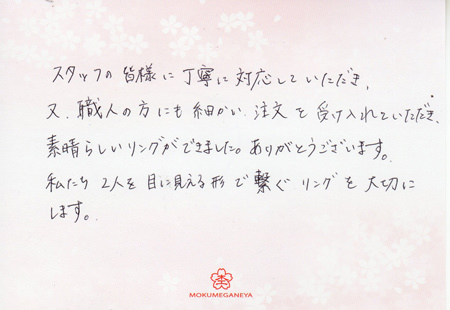 スタッフの皆様に丁寧に対応していただき、
又、職人の方にも細かい注文を受け入れていただき、
素晴らしいリングができました。ありがとうございます。
私たち2人を目に見える形で繋ぐリングを大切に
します。
MOKUMEGANEYA